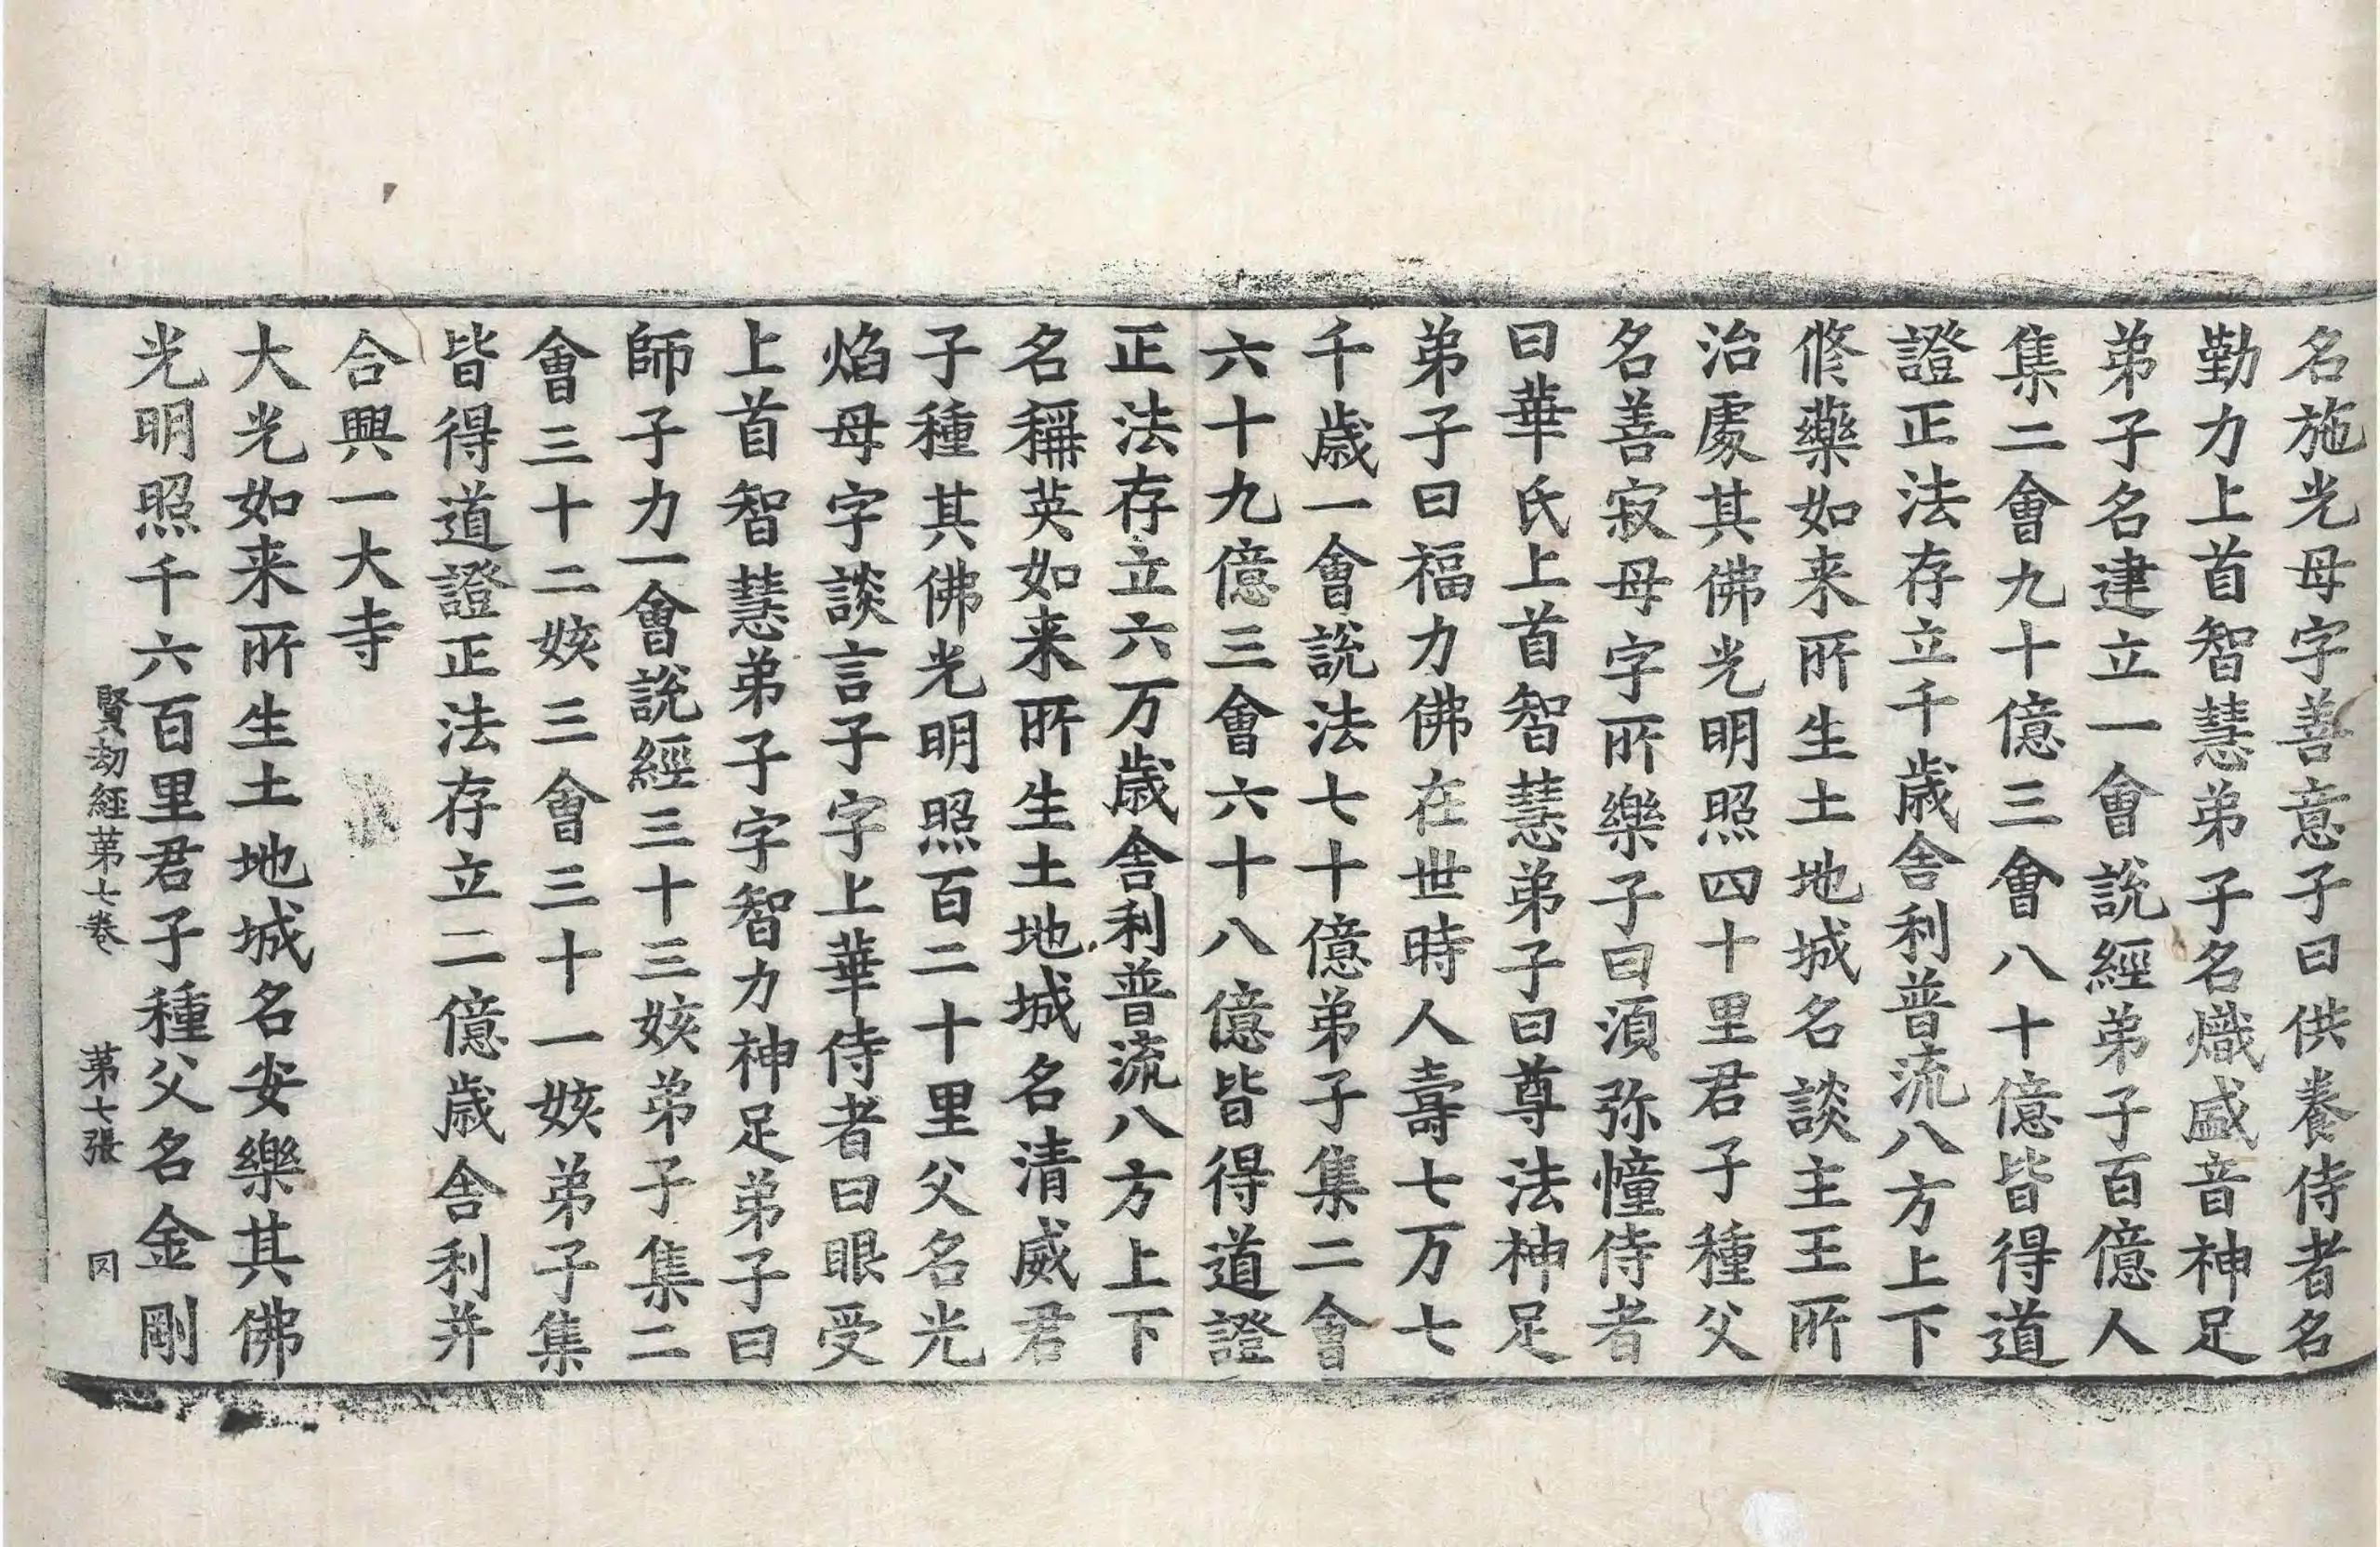 名施光母字善意子曰供養侍者名
勤力上首智慧弟子名熾盛音神足
弟子名建立一會說經弟子百億人
集二會九十億三會八十億皆得道
證正法存立千歲舎利普流八方上下
修藥如来所生土地城名談主王所
治處其佛光明照四十里君子種父
名善寂母字所樂子曰湏弥幢侍者
曰華氏上首智慧弟子曰尊法神足
弟子曰福力佛在世時人壽七万七
千歲一會說法七十億弟子集二會
六十九億三會六十八億皆得道證
正法存立六万歲舎利普流八方上下
名稱英如来所生土地城名清威君
子種其佛光明照百二十里父名光
焰母字談言子字上華侍者曰眼受
上首智慧弟子字智力神足弟子曰
師子力一會說經三十三姟弟子集二
會三十二姟三會三十一姟弟子集
皆得道證正法存立二億歲舎利并
合興一大寺
大光如来所生土地城名安樂其佛
光明照千六百里君子種父名金剛
賢劫經苐七卷 苐七張